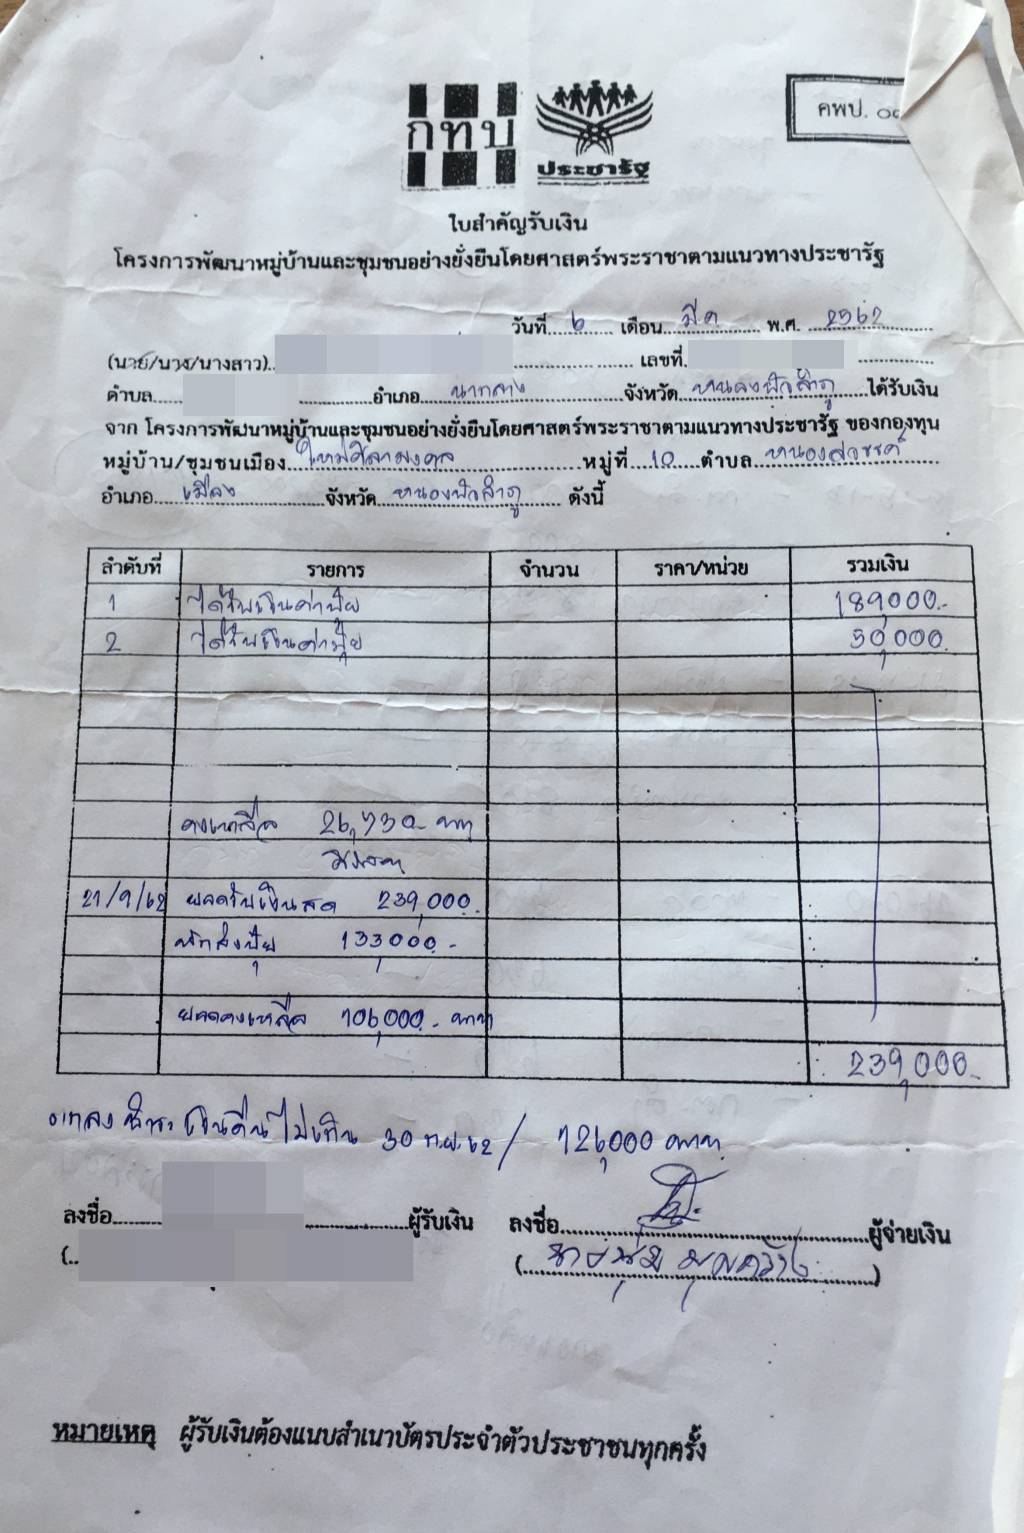 กทบ
ประชารัฐ
คพป. ๐๑
ใบสำคัญรับเงิน
โครงการพัฒนาหมู่บ้านและชุมชนอย่างยั่งยืนโดยศาสตร์พระราชาตามแนวทางประชารัฐ
วันที่ 6 เดือน มีค พ.ศ. 2562
(นาย/นาง/นางสาว) เลขที่
ตำบล อำเภอ นากลาง จังหวัด หนองบัวลำภู ได้รับเงิน
จาก โครงการพัฒนาหมู่บ้านและชุมชนอย่างยั่งยืนโดยศาสตร์พระราชาตามแนวทางประชารัฐ ของกองทุน
หมู่บ้าน/ชุมชนเมือง ใหม่ศิลามงคล หมู่ที่ 10 ตำบล หนองสวรรค์
อำเภอ เมือง จังหวัด หนองบัวลำภู ดังนี้
ลำดับที่ รายการ จำนวน ราคา/หน่วย รวมเงิน
1 ได้รับเงินค่าปุ๋ย 189,000.-
2 ได้รับเงินค่าปุ๋ย 50,000.
คงเหลือ 26,730.- บาท
21/9/62 ยอดรับเงินสด 239,000.
หักส่งปุ๋ย 133,000.-
ยอดคงเหลือ 106,000.- บาท
239,000.-
เงินคืนไม่เกิน 30 ก.ย. 62 / 126,000 บาท
ลงชื่อ ผู้รับเงิน ลงชื่อ ผู้จ่ายเงิน
หมายเหตุ ผู้รับเงินต้องแนบสำเนาบัตรประจำตัวประชาชนทุกครั้ง